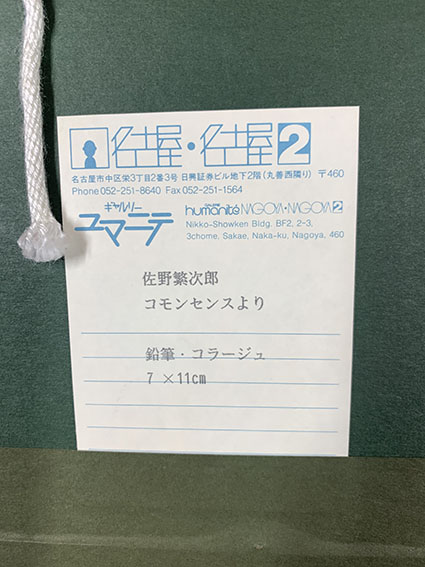 名古屋・名古屋2
名古屋市中区栄3丁目2番3号 日興証券ビル地下2階(丸善西隣り) 〒460
Phone 052-251-8640 Fax 052-251-1564
ギャルリー
ユマニテ
humanité NAGOYA・NAGOYA2
Nikko-Showken Bldg. BF2, 2-3,
3chome, Sakae, Naka-ku, Nagoya, 460
佐野繁次郎
コモンセンスより
鉛筆・コラージュ
7 ×11cm